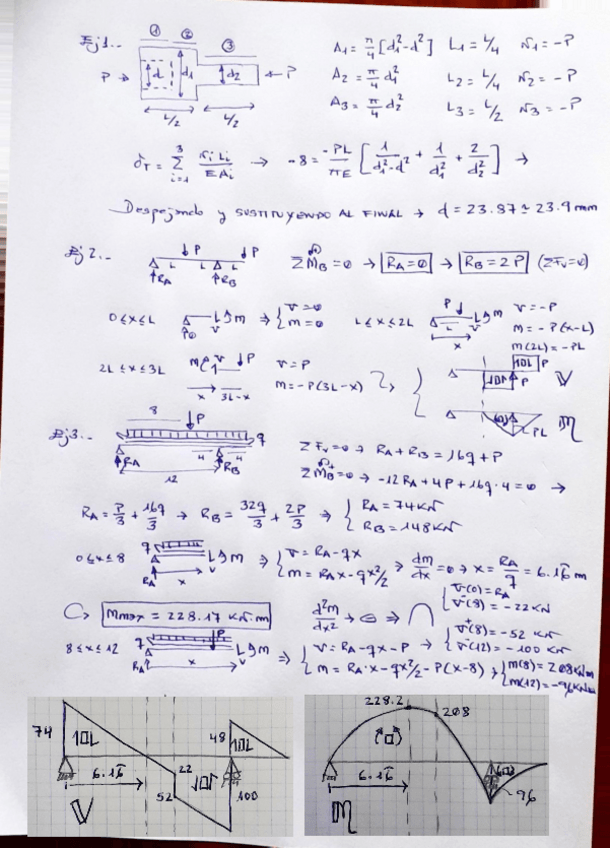 Ej1.-
① ② ③
P → d d₁ d₂ ← P
L/2 L/2
A₁ = π/4 [d₁² - d²] L₁ = L/4 N₁ = -P
A₂ = π/4 d₁² L₂ = L/4 N₂ = -P
A₃ = π/4 d₂² L₃ = L/2 N₃ = -P
δT = Σ(i=1, 3) NᵢLᵢ/EAᵢ → -δ = -PL/πE [1/(d₁²-d²) + 1/d₁² + 2/d₂²] →
Despejando y SUSTITUYENDO AL FINAL → d = 23.87 ≃ 23.9 mm
Ej2.-
P RA L L RB L
ΣMB = 0 → RA = 0 → RB = 2P (ΣFv = 0)
0 ≤ x ≤ L 0 V m ⇒ { V = 0 m = 0
L ≤ x ≤ 2L P L x V m V = -P m = -P(x-L) m(2L) = -PL
2L ≤ x ≤ 3L m V P x 3L-x V = P m = -P(3L-x)
P P V
PL M
Ej3.-
8 P q RA 4 RB 4 12
ΣFv = 0 → RA + RB = 16q + P
ΣMB = 0 → -12RA + 4P + 16q·4 = 0 →
RA = P/3 + 16q/3 → RB = 32q/3 + 2P/3 ⇒ { RA = 74 KN RB = 148 KN
0 ≤ x ≤ 8 q RA x V m ⇒ { V = RA - qx m = RAx - qx²/2 → dm/dx = 0 → x = RA/q = 6.16 m
Mmax = 228.17 KN·m d²m/dx² → ⊖ ⇒ ⋂ { V(0) = RA V⁻(8) = -22 KN
8 ≤ x ≤ 12 q P RA x V m ⇒ { V = RA - qx - P m = RA·x - qx²/2 - P(x-8) → { V⁺(8) = -52 KN V⁻(12) = -100 KN
{ m(8) = 208 KNm m(12) = -96 KNm
74 6.16 22 52 48 100 V
228.2 208 6.16 96 M